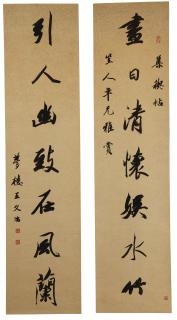 晝日清懷娱水竹
集禊帖
笠人年兄雅賞
引人幽致在風蘭
夢樓王文治